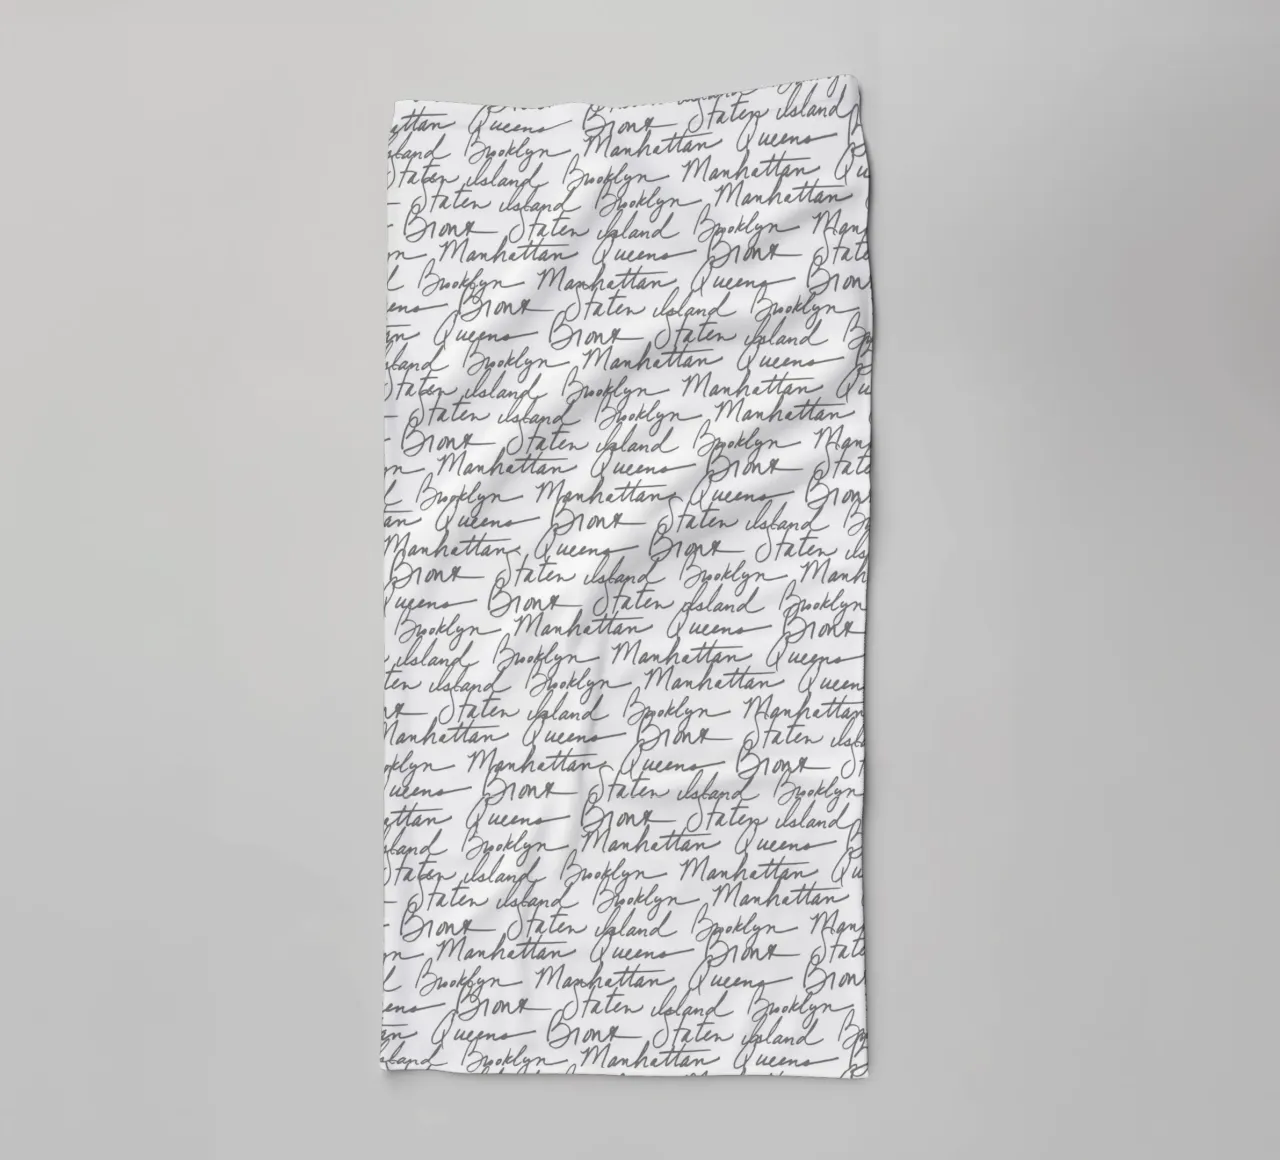 ttan Queens Bronx Staten Island
land Brooklyn Manhattan Queens
Staten Island Brooklyn Manhattan Qu
Staten Island Brooklyn Manhattan
Bronx Staten Island Brooklyn Man
n Manhattan Queens Bronx Stat
Brooklyn Manhattan Queens Bron
ens Bronx Staten Island Brooklyn
an Queens Bronx Staten Island B
land Brooklyn Manhattan Queens
Staten Island Brooklyn Manhattan Qu
Staten Island Brooklyn Manhattan
Bronx Staten Island Brooklyn Man
n Manhattan Queens Bronx Stat
Brooklyn Manhattan Queens Bron
an Queens Bronx Staten Island B
Manhattan Queens Bronx Staten Is
Bronx Staten Island Brooklyn Manh
Queens Bronx Staten Island Brooklyn
Brooklyn Manhattan Queens Bronx
Island Brooklyn Manhattan Queens
ten Island Brooklyn Manhattan Queen
Staten Island Brooklyn Manhattan
Manhattan Queens Bronx Staten Isl
oklyn Manhattan Queens Bronx St
ueens Bronx Staten Island Brooklyn
ttan Queens Bronx Staten Island
land Brooklyn Manhattan Queens
Staten Island Brooklyn Manhattan Qu
Staten Island Brooklyn Manhattan
Bronx Staten Island Brooklyn Man
n Manhattan Queens Bronx Stat
Brooklyn Manhattan Queens Bron
ens Bronx Staten Island Brooklyn
an Queens Bronx Staten Island B
Island Brooklyn Manhattan Queens